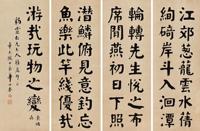 江郊蔥蘢雲水蒨
絢碕岸斗入洄潭
輪轉先生悅之布
席閒燕初日下照
潛鱗俯見意釣忘
魚樂此竿綫優哉
游哉玩物之變